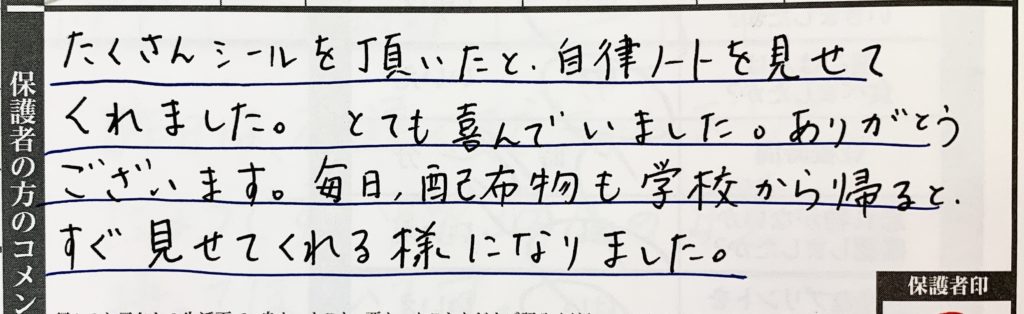 保護者の方のコメン
たくさんシールを頂いたと、自律ノートを見せて
くれました。とても喜んでいました。ありがとう
ございます。毎日、配布物も学校から帰ると、
すぐ見せてくれる様になりました。
保護者印